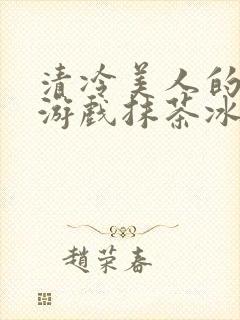 清冷美人的
游戏抹茶冰
趙荣春